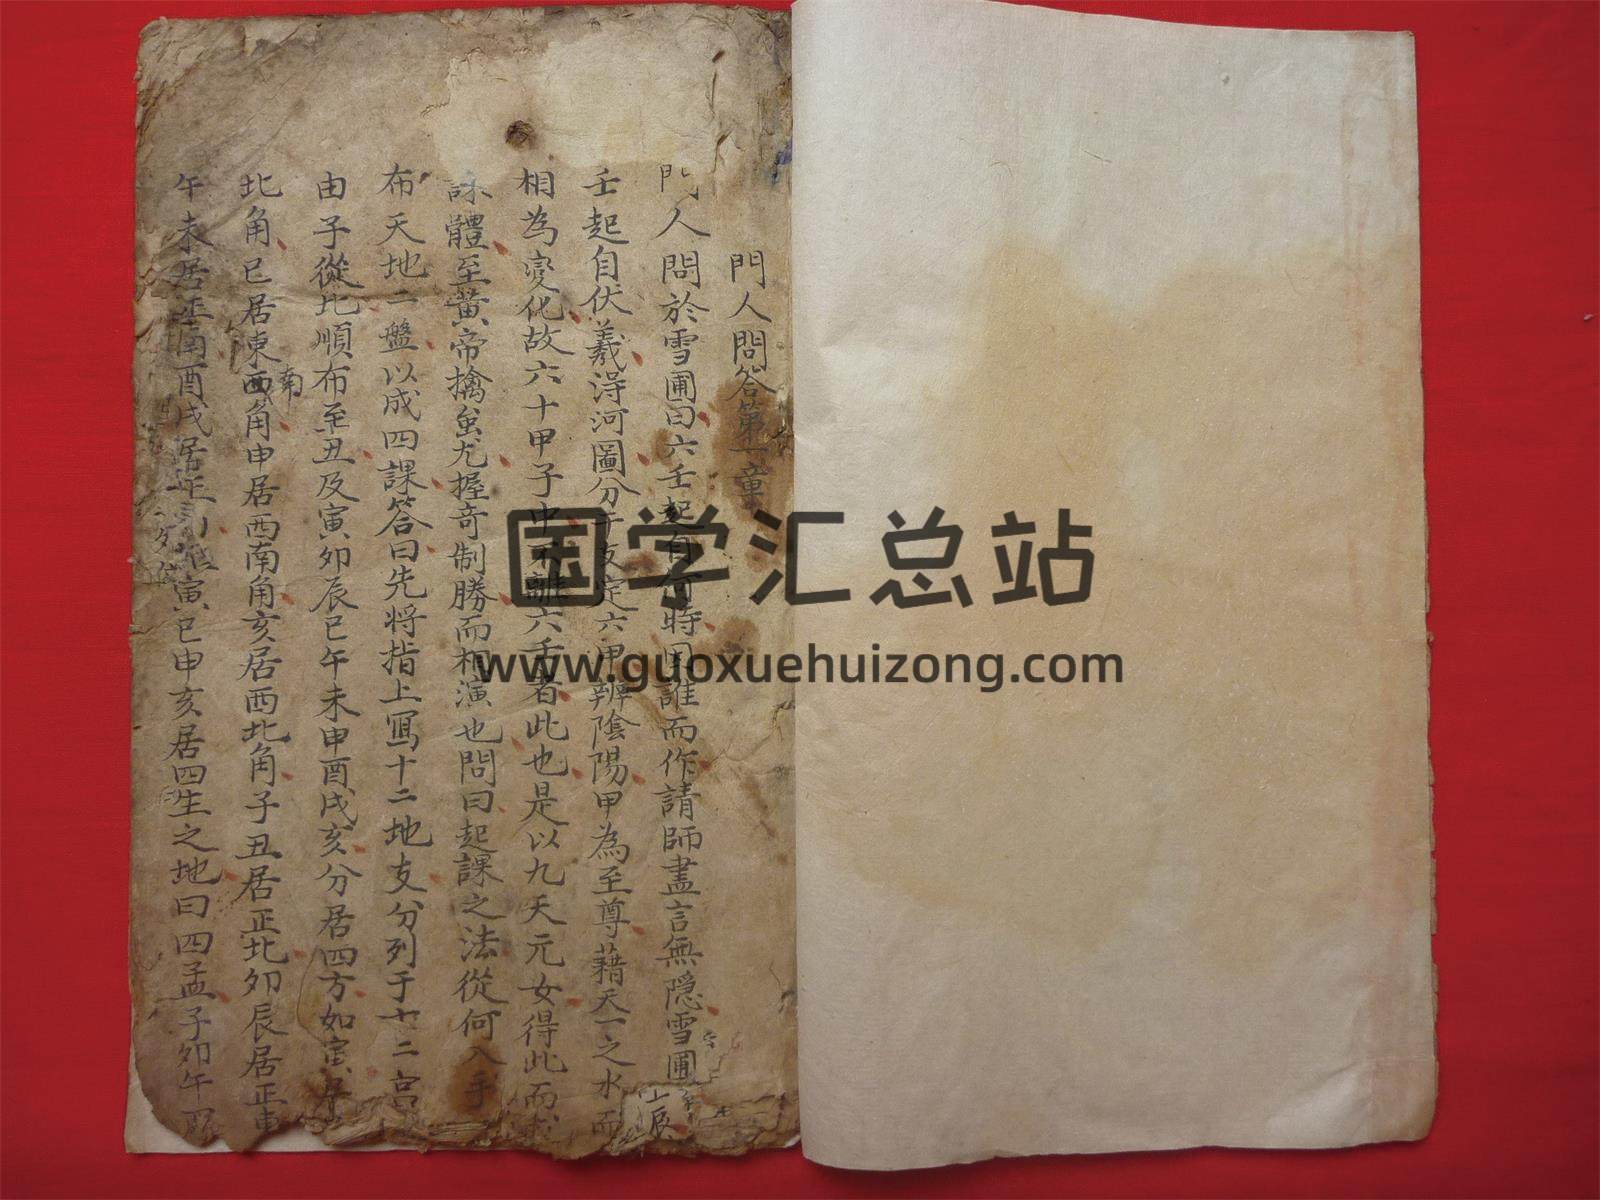 門人問答第一章
門人問於雪圃曰六壬起自何時因誰而作請師盡言無隠雪圃
壬起自伏羲淂河圖分干支定六甲辨陰陽甲為至尊藉天一之水而
相為変化故六十甲子中不離六壬者此也是以九天元女得此而
詠體至黄帝擒蚩尤握竒制勝而相演也問曰起課之法從何入手
布天地二盤以成四課答曰先将指上寫十二地支分列于十二宮
由子從比順布至丑及寅夘辰巳午未申酉戌亥分居四方如寅居
北角巳居東西角申居西南角亥居西北角子丑居正北夘辰居正東
南
午未居正南酉戌居正寅巳申亥居四生之地曰四孟子夘午酉
国学汇总站
www.guoxuehuizong.com